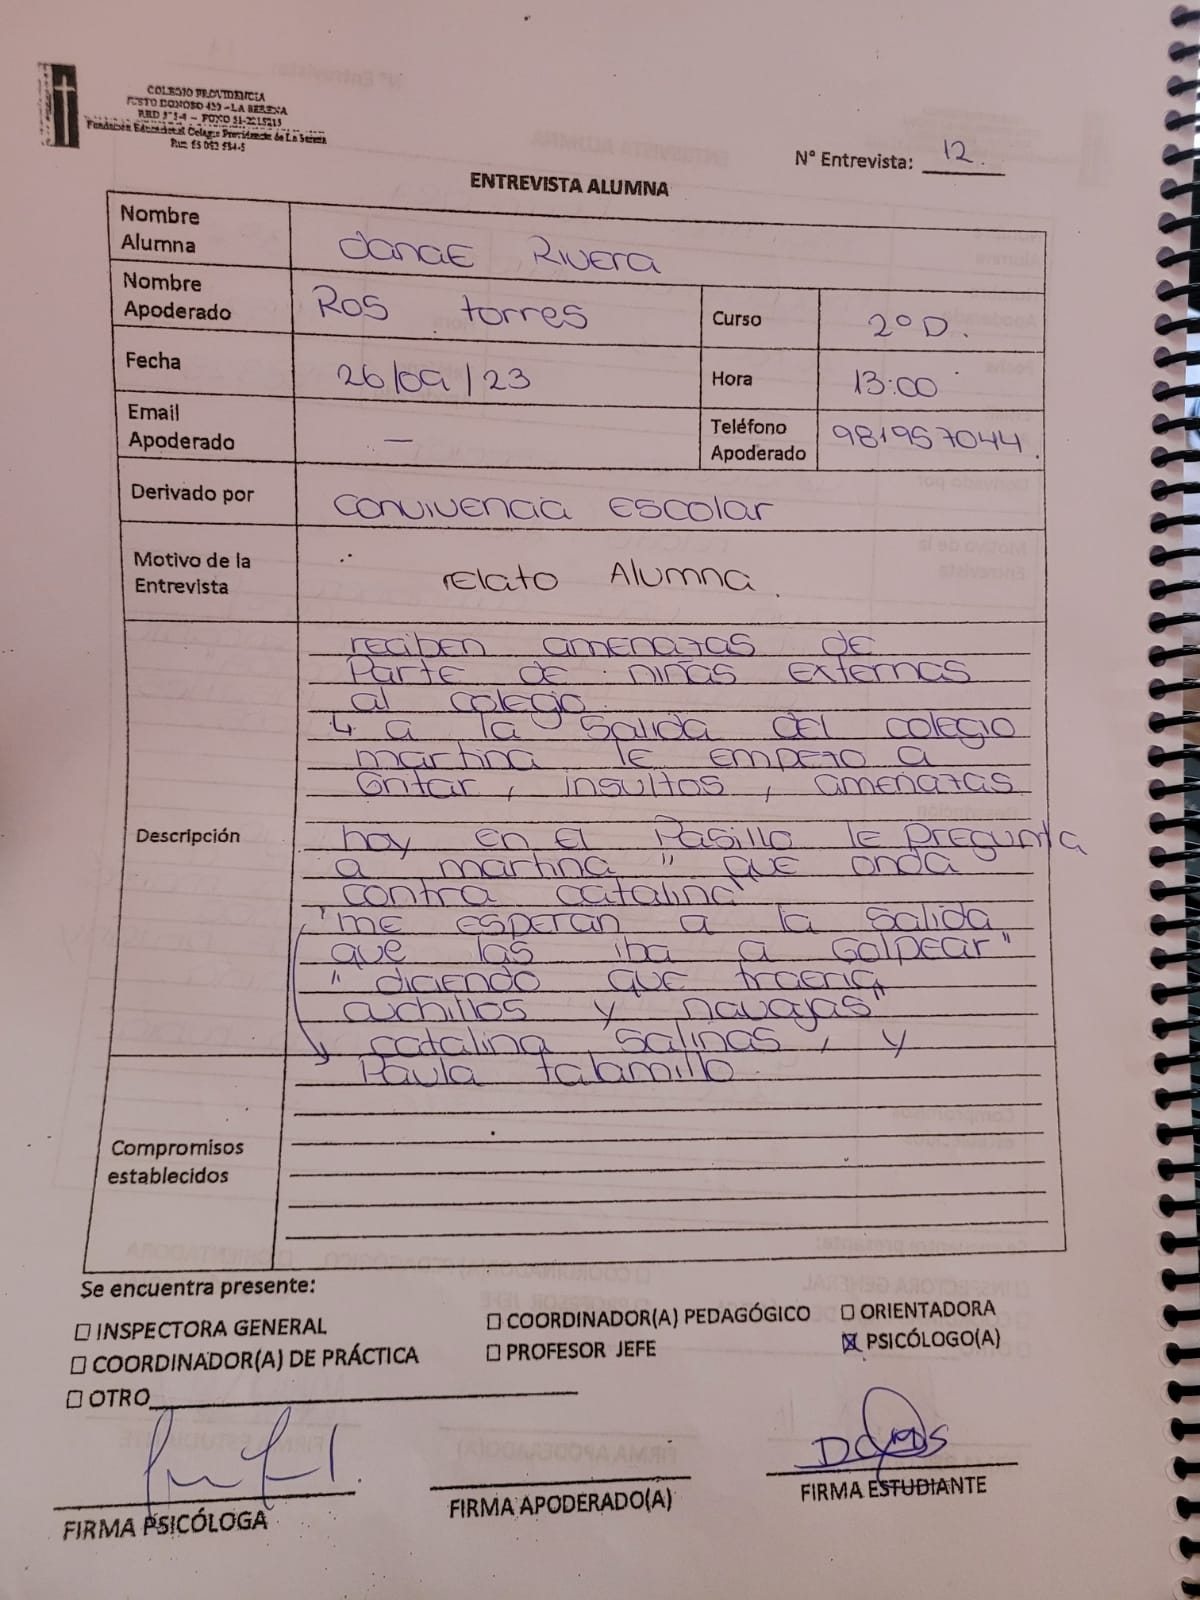 COLEGIO PROVIDENCIA
JUSTO DONOSO 420 - LA SERENA
FONO 51-2215213
Fundación Educacional Colegio Providencia de La Serena
N° Entrevista: 12.
ENTREVISTA ALUMNA
Nombre Alumna danaE Rivera
Nombre Apoderado Ros torres Curso 2° D.
Fecha 26/09/23 Hora 13:00
Email Apoderado — Teléfono Apoderado 981957044.
Derivado por convivencia Escolar
Motivo de la Entrevista relato Alumna.
Descripción
reciben amenazas de
Parte de niñas externas
al colegio.
↳ a la salida del colegio
martina le empezo a
Gritar, insultos, amenazas
hoy en el Pasillo le pregunta
a martina " que onda
contra catalina"
"me esperan a la salida
que las iba a Golpear"
" diciendo que traeria
cuchillos y navajas"
catalina Salinas, y
Paula talamillo.
Compromisos establecidos
Se encuentra presente:
☐ INSPECTORA GENERAL ☐ COORDINADOR(A) PEDAGÓGICO ☐ ORIENTADORA
☐ COORDINADOR(A) DE PRÁCTICA ☐ PROFESOR JEFE ☒ PSICÓLOGO(A)
☐ OTRO
FIRMA PSICÓLOGA FIRMA APODERADO(A) FIRMA ESTUDIANTE